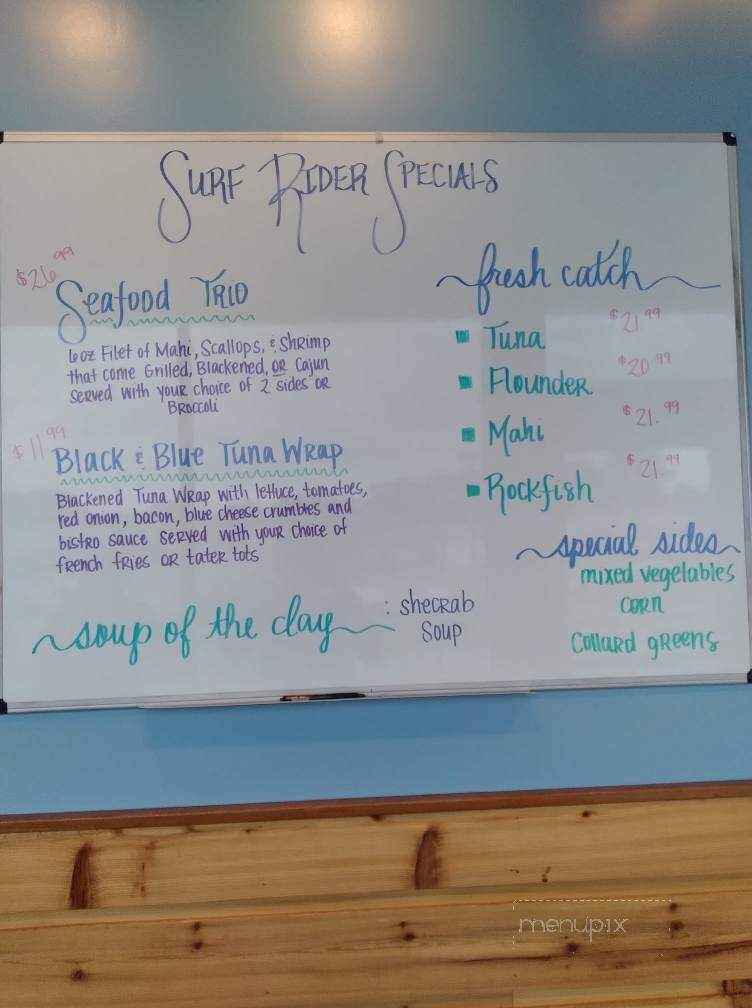 Surf Rider Specials
$26.99
Seafood Trio
6oz Filet of Mahi, Scallops, & Shrimp
that come Grilled, Blackened, OR Cajun
Served with your choice of 2 sides OR
Broccoli
$11.99
Black & Blue Tuna Wrap
Blackened Tuna Wrap with lettuce, tomatoes,
red onion, bacon, blue cheese crumbles and
bistro sauce served with your choice of
french fries OR tater tots
soup of the day : shecrab
soup
fresh catch
Tuna $21.99
Flounder $20.99
Mahi $21.99
Rockfish $21.99
special sides
mixed vegetables
corn
collard greens
menupix